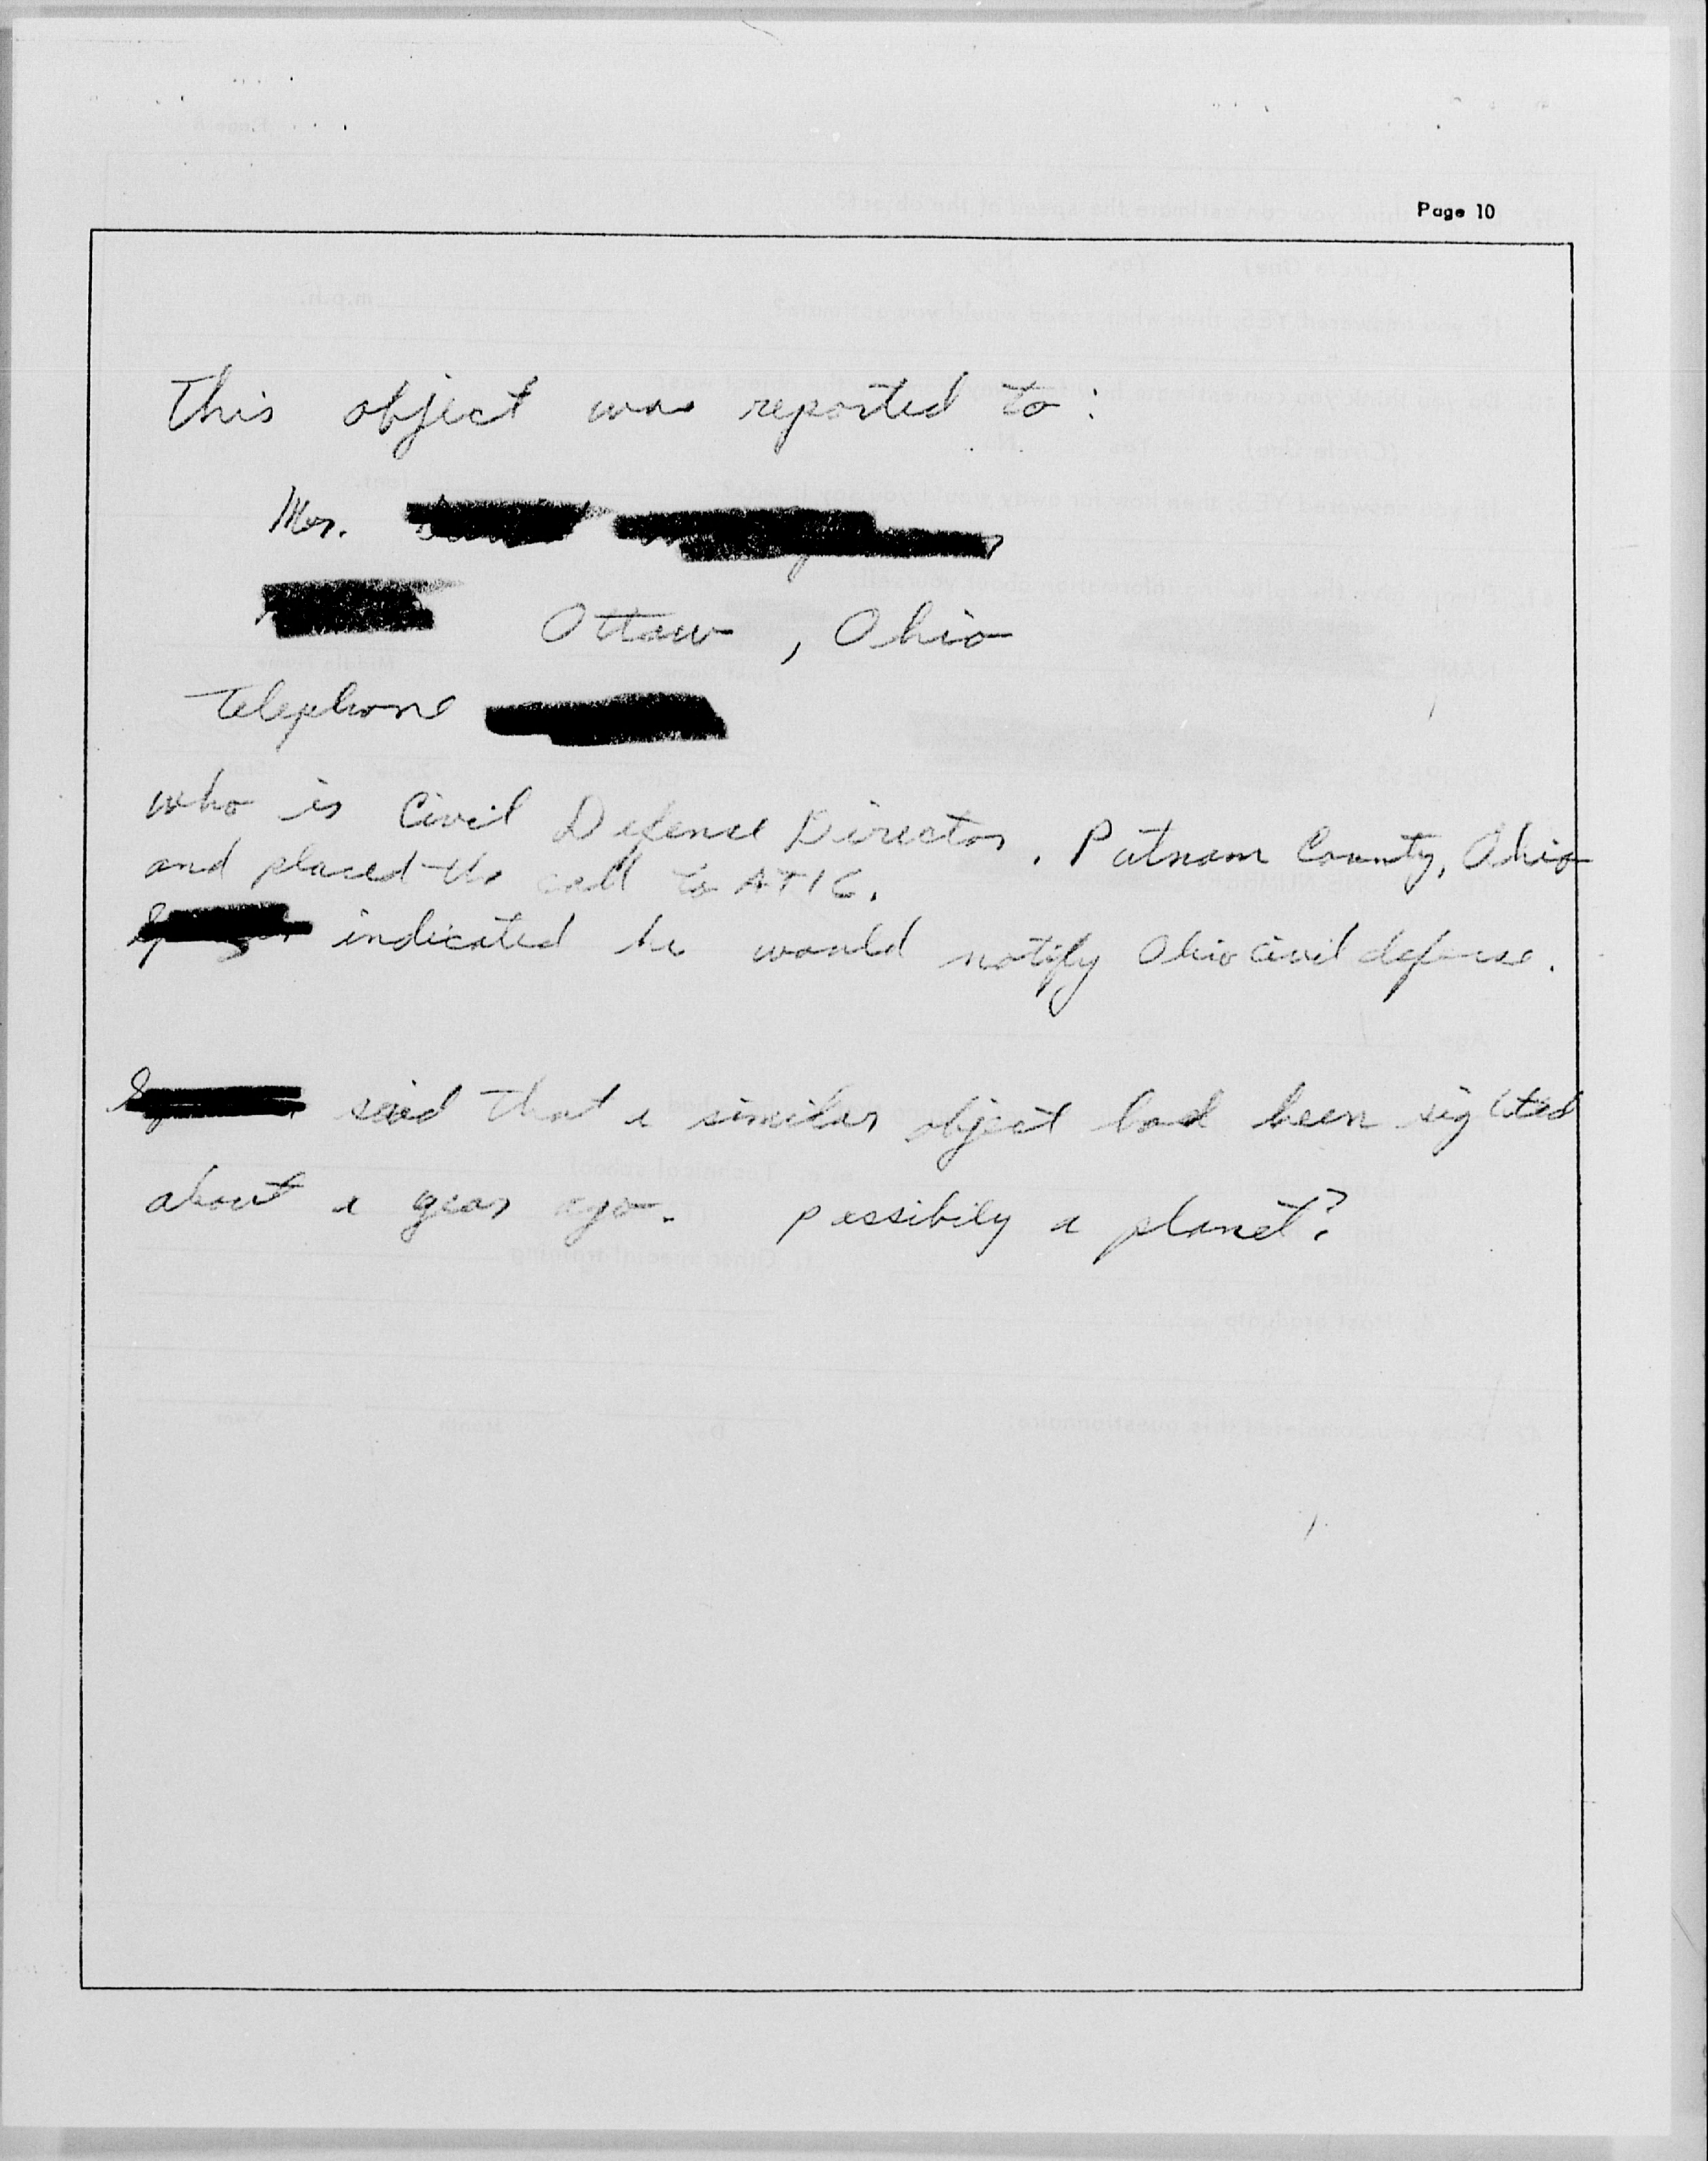 Page 10
This object was reported to:
Mr.
Ottawa, Ohio
Telephone
who is Civil Defense Director, Putnam County, Ohio
and placed the call to ATIC.
indicated he would notify Ohio civil defense.
said that a similar object had been sighted
about a year ago. possibily a planet?